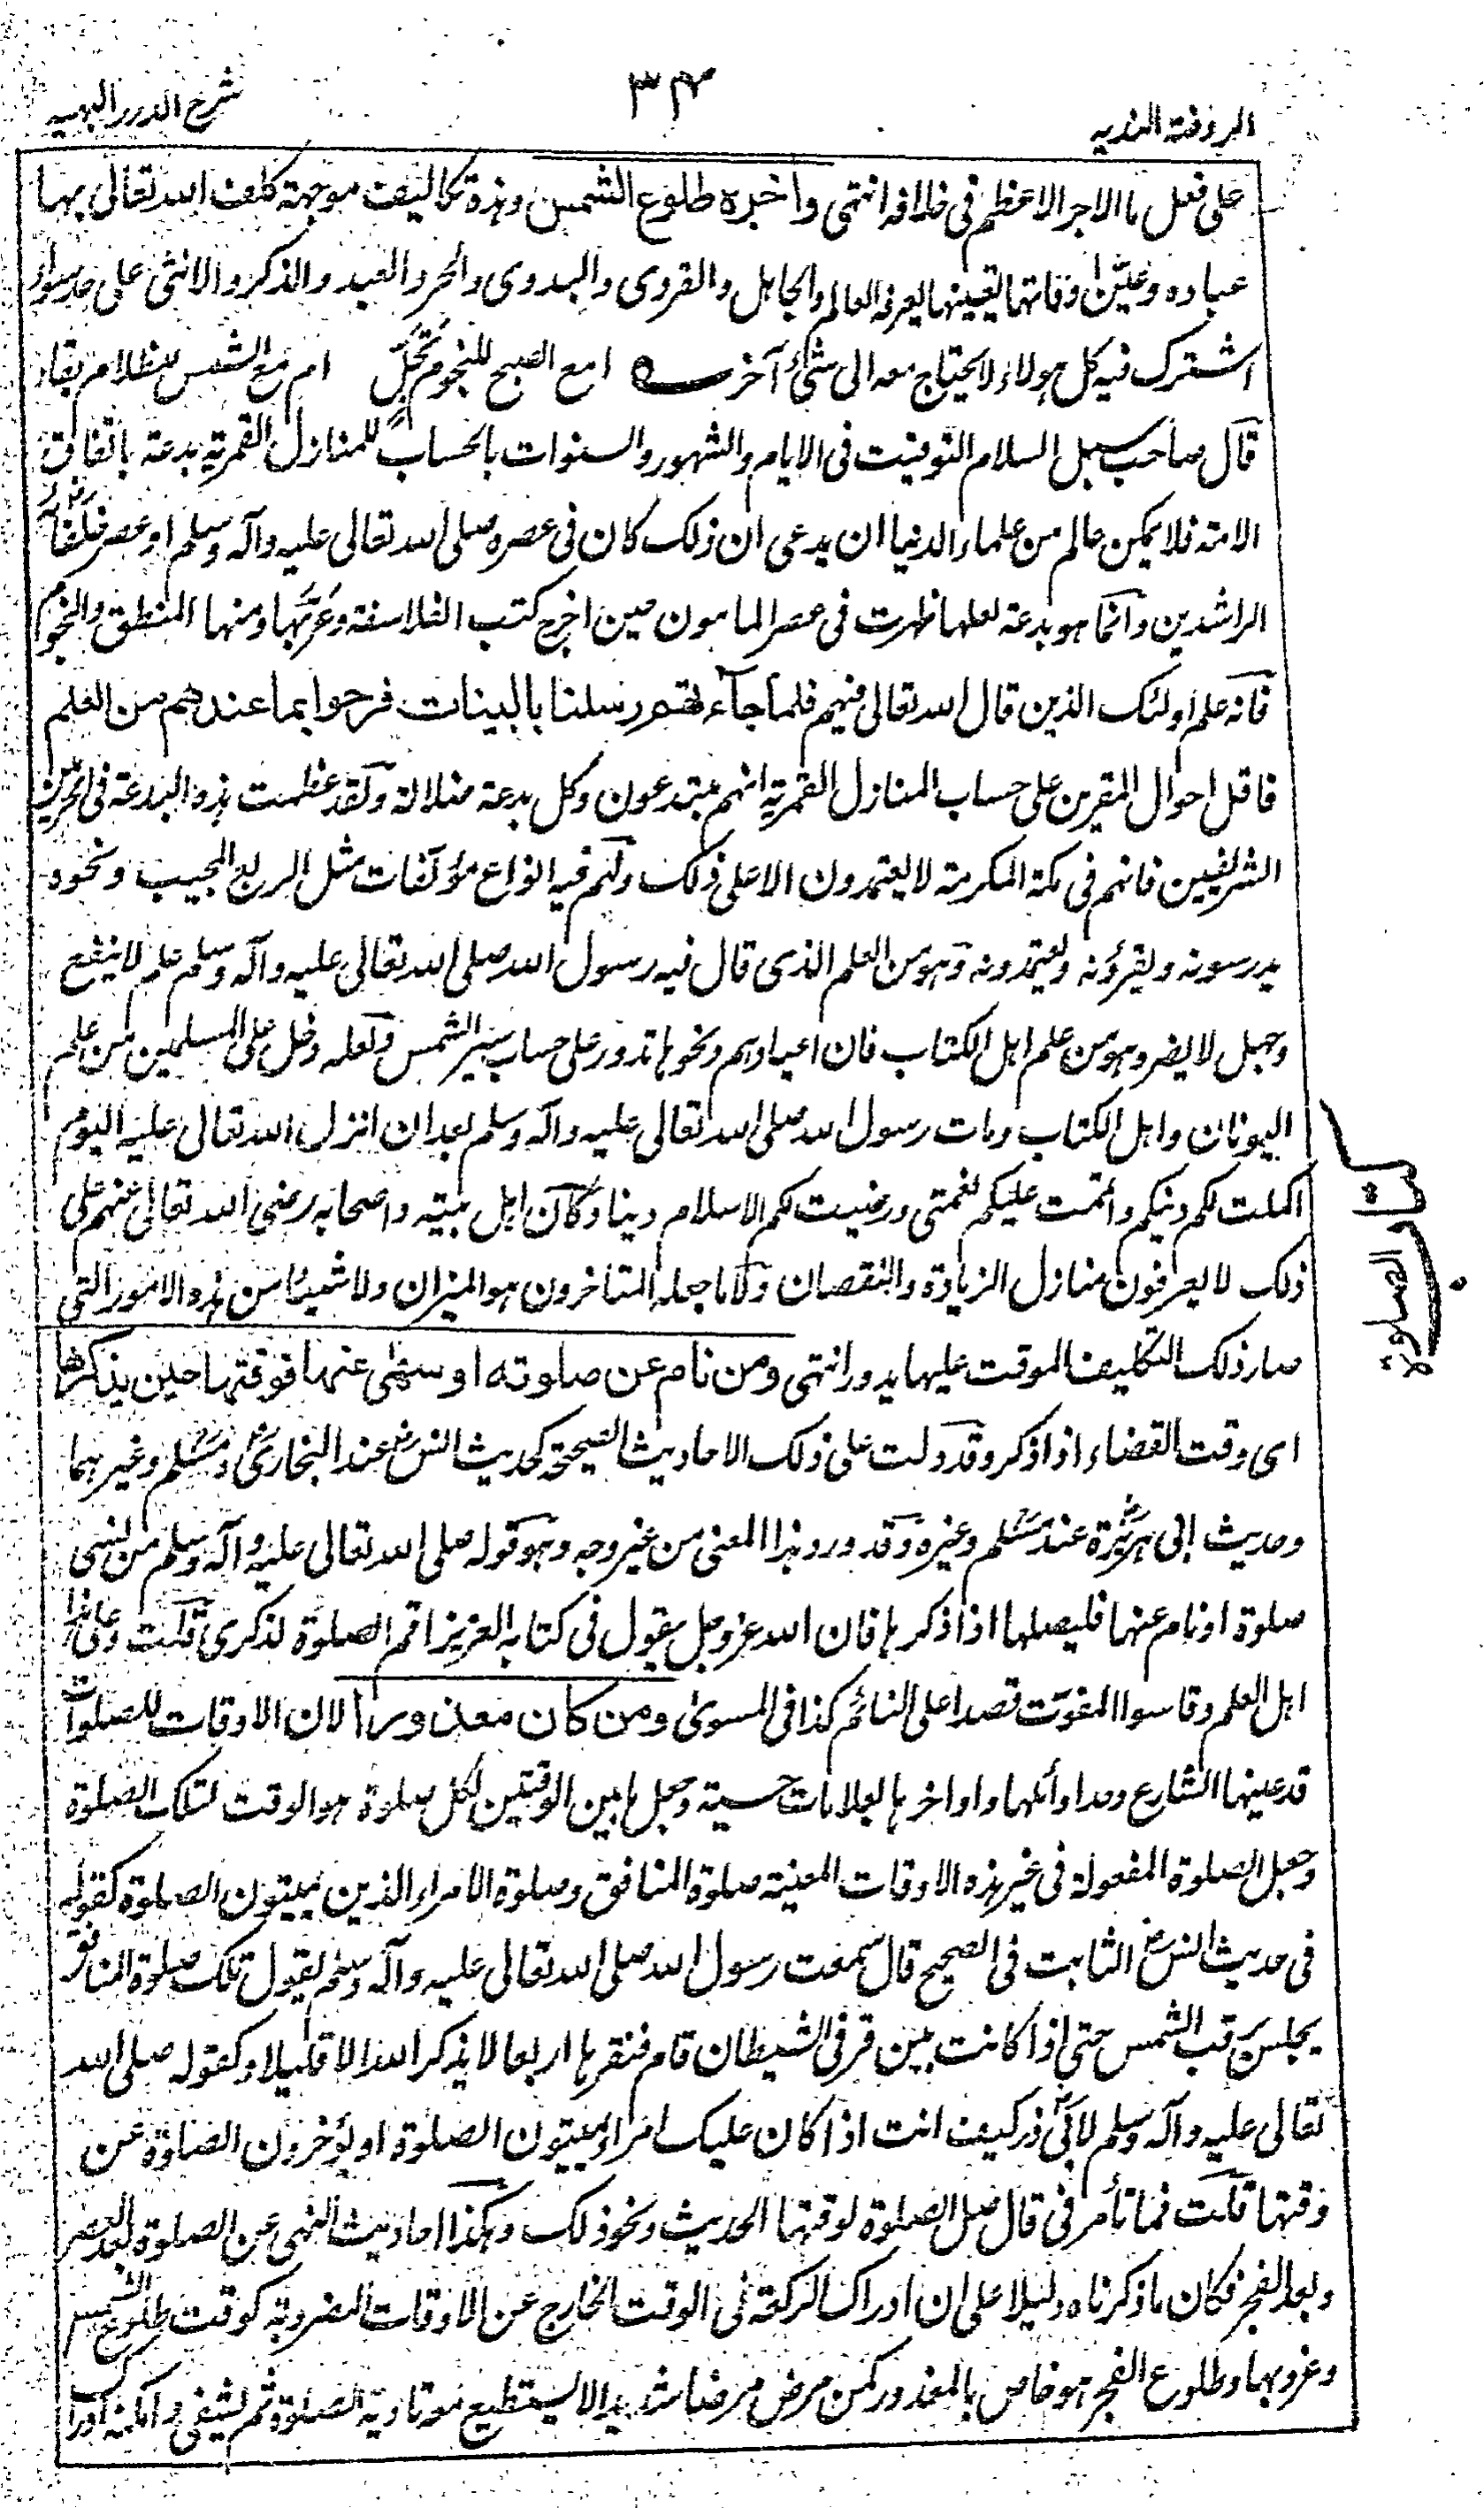 الروضة الندیه
۳۴
شرح الدرر البهیه
علی فعل ما الاجر الاعظم فی خلافه انتهی وآخره طلوع الشمس وهذه تکالیف موجهة کلف الله تعالی بها
عباده وعیّن اوقاتها تعیینها یعرفه العالم والجاهل والقروی والبدوی والحر والعبد والذکر والانثی علی حد سواء
اشترک فیه کل هولاء لا یحتاج معه الی شئ آخر امع الصبح للنجوم تجلّ ام مع الشمس للظلام بقاء
قال صاحب سبل السلام التوقیت فی الایام والشهور والسنوات بالحساب للمنازل القمریة بدعة باتفاق
الامة فلا یمکن عالم من علماء الدنیا ان یدعی ان ذلک کان فی عصره صلی الله تعالی علیه وآله وسلم او عصر خلفائه
الراشدین وانما هو بدعة لعلها ظهرت فی عصر المامون حین اخرج کتب الفلاسفة وعرّبها ومنها المنطق والنجوم
فانه علم اولئک الذین قال الله تعالی فیهم فلما جآءتهم رسلنا بالبینات فرحوا بما عندهم من العلم
فاقل احوال المقرین علی حساب المنازل القمریة انهم مبتدعون وکل بدعة ضلالة ولقد عظمت هذه البدعة فی الحرمین
الشریفین فانهم فی مکة المکرمة لا یعتمدون الا علی ذلک ولهم فیه انواع مؤلفات مثل الربع المجیب ونحوه
یدرسونه ویقرؤنه ویعتمدونه وهو من العلم الذی قال فیه رسول الله صلی الله تعالی علیه وآله وسلم علم لا ینفع
وجهل لا یضر وهو من علم اهل الکتاب فان اعیادهم ونحوها تدور علی حساب سیر الشمس ولعله دخل علی المسلمین من علم
الیونان واهل الکتاب ومات رسول الله صلی الله تعالی علیه وآله وسلم بعد ان انزل الله تعالی علیه الیوم
اکملت لکم دینکم واتممت علیکم نعمتی ورضیت لکم الاسلام دینا وکان اهل بیته واصحابه رضی الله تعالی عنهم علی
ذلک لا یعرفون منازل الزیادة والنقصان ولا ما جعله المتاخرون هو المیزان ولا شیئا من هذه الامور التی
صار ذلک التکلیف الموقت علیها یدور انتهی ومن نام عن صلوته او سهٰی عنها فوقتها حین یذکرها
ای وقت القضاء اذا ذکر وقد دلت علی ذلک الاحادیث الصحیحة کحدیث انسؓ عند البخاریؒ ومسلمؒ وغیرهما
وحدیث ابی هریرةؓ عند مسلمؒ وغیره وقد ورد هذا المعنی من غیر وجه وهو قوله صلی الله تعالی علیه وآله وسلم من نسی
صلوة او نام عنها فلیصلها اذا ذکرها فان الله عز وجل یقول فی کتابه العزیز اقم الصلوة لذکری قلت وعلی هذا
اهل العلم وقاسوا المفوّت قصدا علی النائم کذا فی المسوی ومن کان معذورا لان الاوقات للصلوات
قد عینها الشارع وحد اوائلها واواخرها بعلامات حسیة وجعل ما بین الوقتین لکل صلوة هو الوقت لتلک الصلوة
وجعل الصلوة المفعولة فی غیر هذه الاوقات المعینة صلوة المنافق وصلوة الامراء الذین یمیتون الصلوة کقوله
فی حدیث انسؓ الثابت فی الصحیح قال سمعت رسول الله صلی الله تعالی علیه وآله وسلم یقول تلک صلوة المنافق
یجلس یرقب الشمس حتی اذا کانت بین قرنی الشیطان قام فنقرها اربعا لا یذکر الله الا قلیلا وکقوله صلی الله
تعالی علیه وآله وسلم لابی ذر کیف انت اذا کان علیک امراء یمیتون الصلوة او یؤخرون الصلوة عن
وقتها قلت فما تأمرنی قال صل الصلوة لوقتها الحدیث ونحو ذلک وهکذا احادیث النهی عن الصلوة بعد العصر
وبعد الفجر فکان ما ذکرناه دلیلا علی ان ادراک الرکعة فی الوقت الخارج عن الاوقات المضروبة کوقت طلوع الشمس
وغروبها وطلوع الفجر هو خاص بالمعذور کمن مرض مرضا شدیدا لا یستطیع معه تادیة الصلوة ثم شفی وامکنه ادراک
قضاء الصلوة